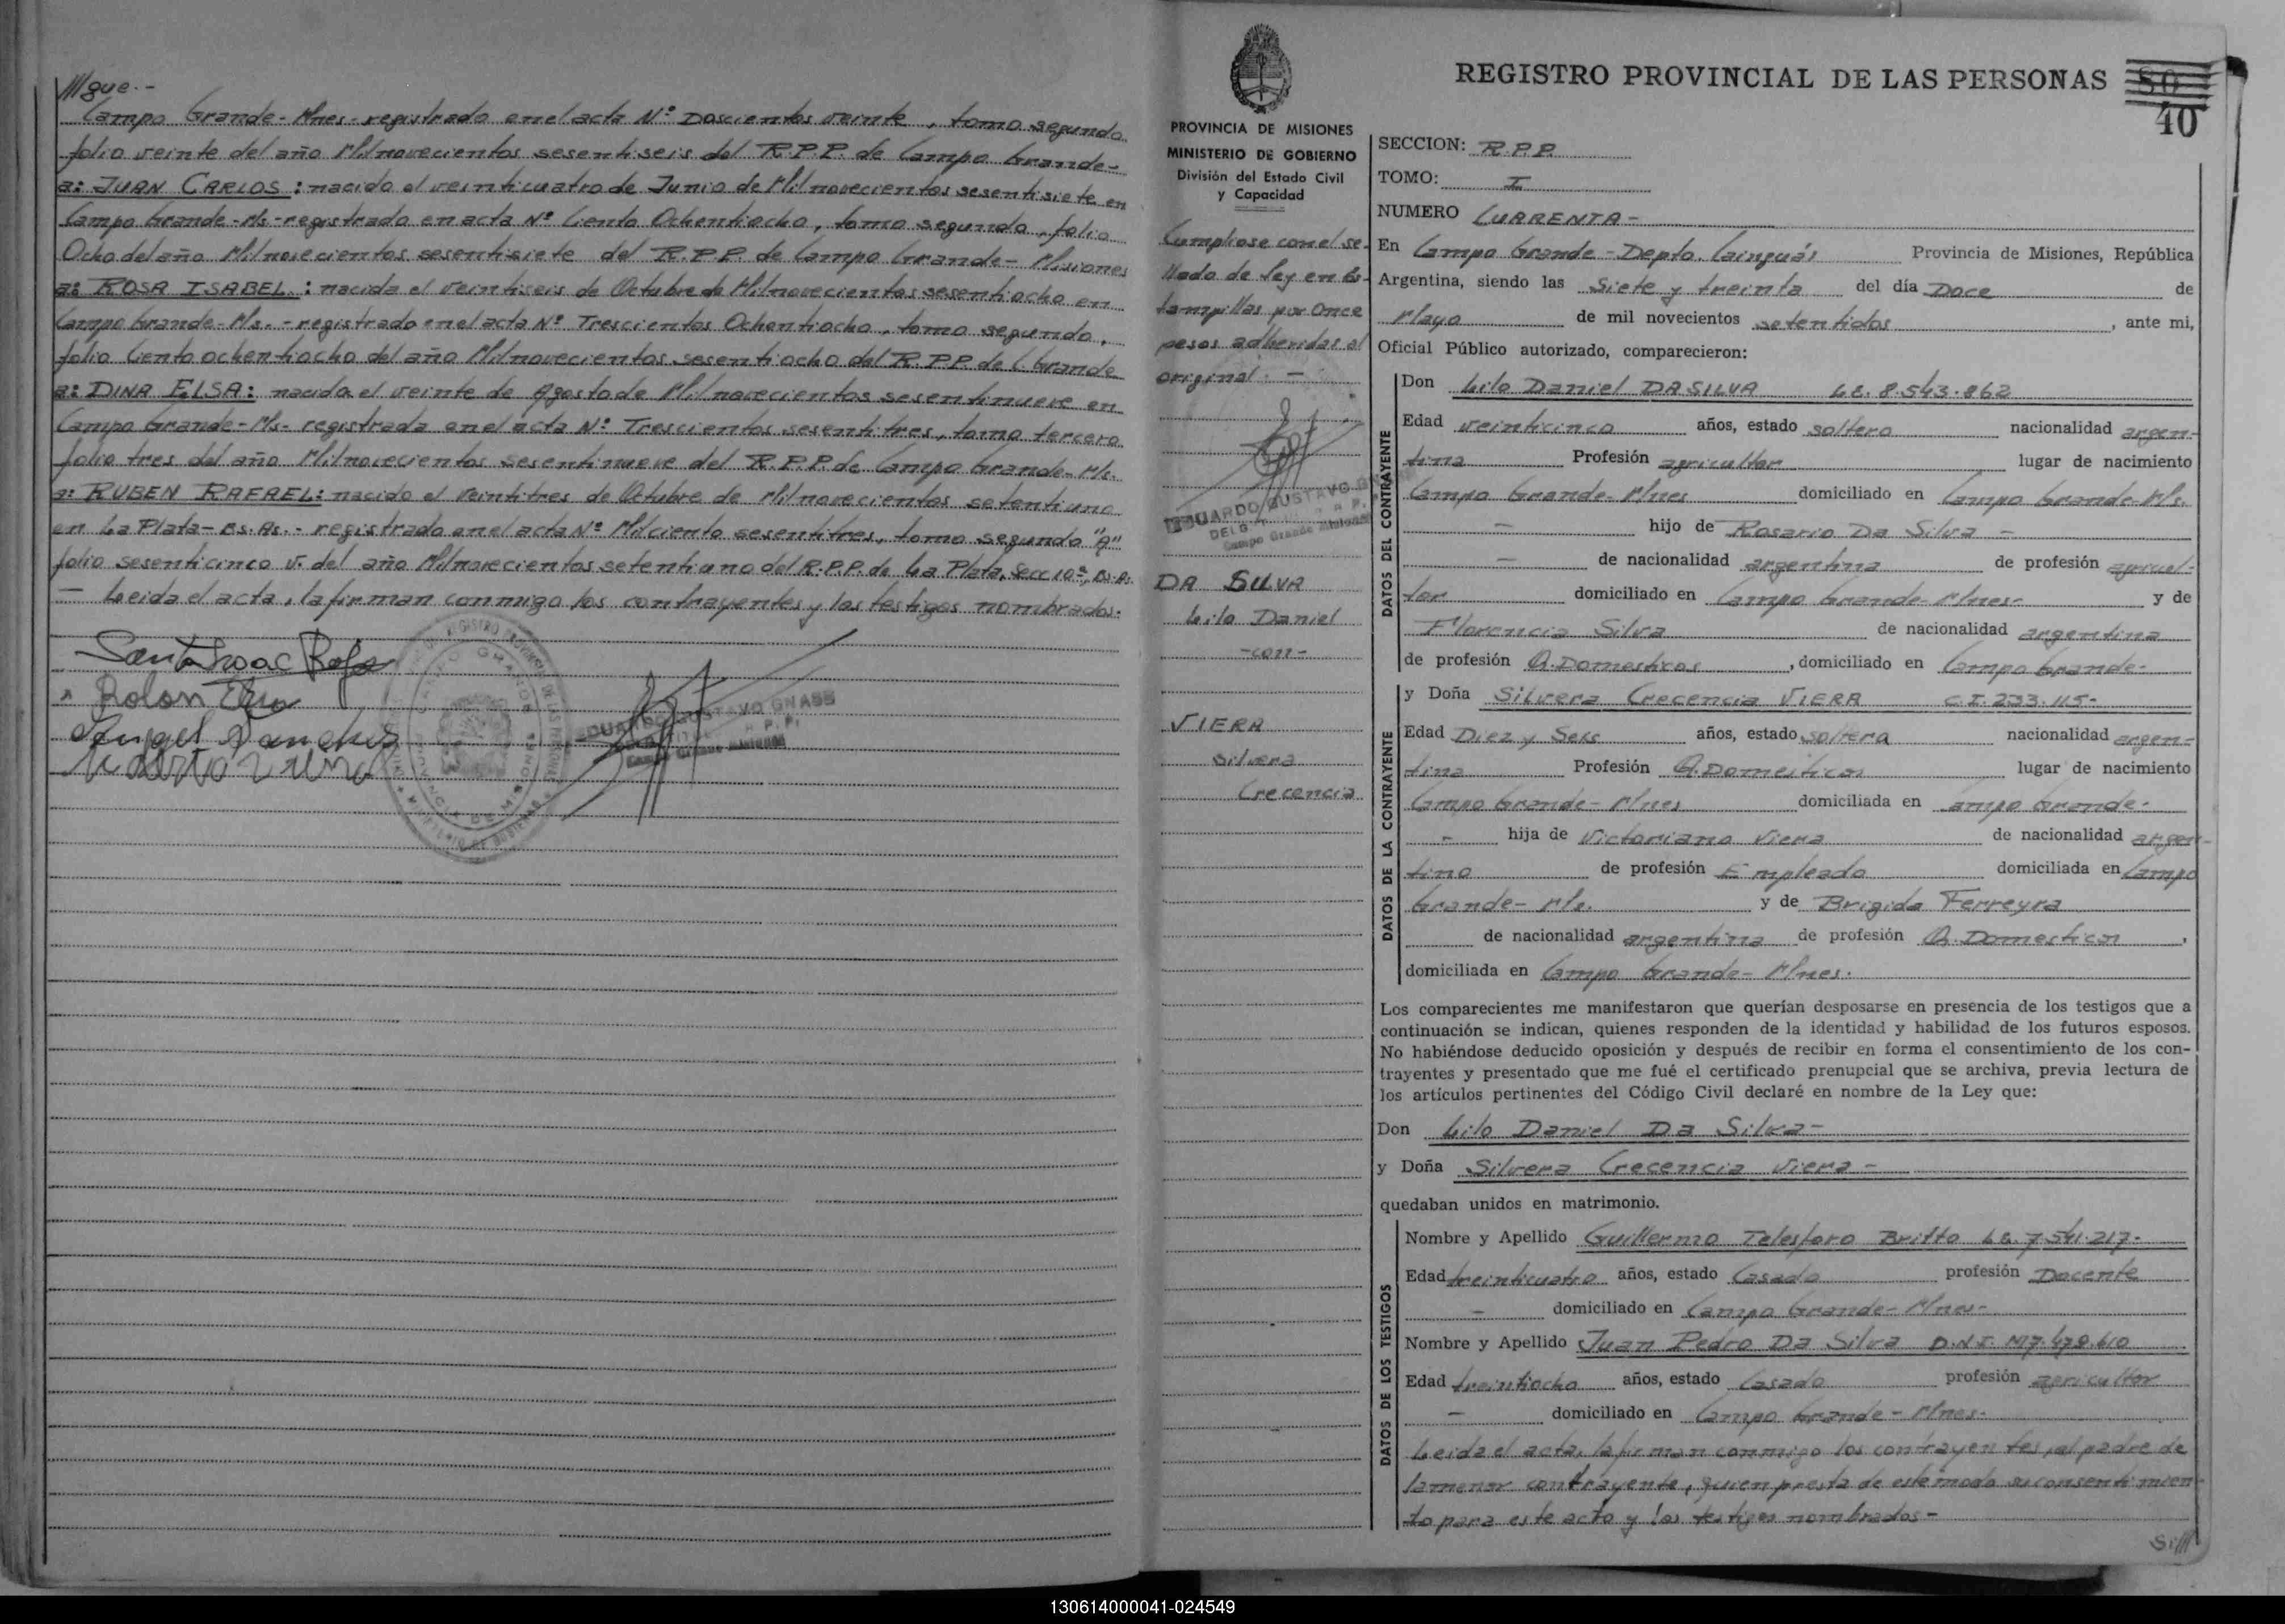 ///gue.-
Campo Grande-Mnes-registrado en el acta Nº Doscientos veinte, tomo segundo
folio veinte del año Milnovecientos sesentiseis del R.P.P. de Campo Grande-
a: JUAN CARLOS: nacido el veinticuatro de Junio de Milnovecientos sesentisiete en
Campo Grande-Ms-registrado en acta Nº Ciento Ochentiocho, tomo segundo, folio
Ocho del año Milnovecientos sesentisiete del R.P.P. de Campo Grande- Misiones
a: ROSA ISABEL.: nacida el veintiseis de Octubre de Milnovecientos sesentiocho en
Campo Grande-Ms.-registrado en el acta Nº Trescientos Ochentiocho, tomo segundo,
folio Ciento ochentiocho del año Milnovecientos sesentiocho del R.P.P. de C. Grande
a: DINA ELSA: nacida el veinte de Agosto de Milnovecientos sesentinueve en
Campo Grande-Ms- registrada en el acta Nº Trescientos sesentitres, tomo tercero
folio tres del año Milnovecientos sesentinueve del R.P.P. de Campo Grande-Ms.
a: RUBEN RAFAEL: nacido el veintitres de Octubre de Milnovecientos setentiuno
en La Plata-Bs.As.- registrado en el acta Nº Milciento sesentitres, tomo segundo "A"
folio sesenticinco v. del año Milnovecientos setentiuno del R.P.P. de La Plata, Secc 10ª, Bs.As.
- Leida el acta, la firman conmigo los contrayentes y los testigos nombrados.
Rolon
Angel Sanchez
EDUARDO GUSTAVO GNASS
Campo Grande Misiones
REGISTRO PROVINCIAL DE LAS PERSONAS
80
40
PROVINCIA DE MISIONES
MINISTERIO DE GOBIERNO
División del Estado Civil
y Capacidad
Cumpliose con el se-
llado de ley en es-
tampillas por Once
pesos adheridas al
original. -
EDUARDO GUSTAVO
Campo Grande Misiones
DA SILVA
Lilo Daniel
-con-
VIERA
Silvera
Crecencia
SECCION: R.P.P.
TOMO: I
NUMERO CUARENTA-
En Campo Grande-Depto. Cainguás Provincia de Misiones, República
Argentina, siendo las Siete y treinta del día Doce de
Mayo de mil novecientos setentidos, ante mi,
Oficial Público autorizado, comparecieron:
DATOS DEL CONTRAYENTE
Don Lilo Daniel DA SILVA L.E. 8.543.862
Edad veinticinco años, estado soltero nacionalidad argen-
tina Profesión agricultor lugar de nacimiento
Campo Grande-Mnes domiciliado en Campo Grande-Ms.
- hijo de Rosario Da Silva -
- de nacionalidad argentina de profesión agricul-
tor domiciliado en Campo Grande-Mnes- y de
Florencia Silva de nacionalidad argentina
de profesión Q.Domesticos, domiciliado en Campo Grande-
DATOS DE LA CONTRAYENTE
y Doña Silvera Crecencia VIERA C.I. 233.115-
Edad Diez y Seis años, estado soltera nacionalidad argen-
tina Profesión Q.Domesticos lugar de nacimiento
Campo Grande-Mnes domiciliada en Campo Grande-
- hija de Victoriano Viera de nacionalidad argen-
tino de profesión Empleado domiciliada en Campo
Grande-Ms. y de Brigida Ferreyra
de nacionalidad argentina de profesión Q.Domesticos,
domiciliada en Campo Grande-Mnes.
Los comparecientes me manifestaron que querían desposarse en presencia de los testigos que a
continuación se indican, quienes responden de la identidad y habilidad de los futuros esposos.
No habiéndose deducido oposición y después de recibir en forma el consentimiento de los con-
trayentes y presentado que me fué el certificado prenupcial que se archiva, previa lectura de
los artículos pertinentes del Código Civil declaré en nombre de la Ley que:
Don Lilo Daniel Da Silva-
y Doña Silvera Crecencia Viera-
quedaban unidos en matrimonio.
DATOS DE LOS TESTIGOS
Nombre y Apellido Guillermo Telesforo Britto L.E. 7.541.217-
Edad treinticuatro años, estado Casado profesión Docente
- domiciliado en Campo Grande-Mnes-
Nombre y Apellido Juan Pedro Da Silva D.N.I. M7.479.610
Edad treintiocho años, estado Casado profesión agricultor
- domiciliado en Campo Grande-Mnes.
Leida el acta, la firman conmigo los contrayentes, el padre de
la menor contrayente, quien presta de este modo su consentimien-
to para este acto y los testigos nombrados-
Si///
130614000041-024549